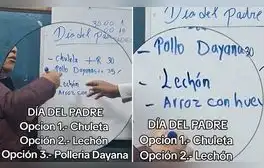 Día del Padre
- Chuleta
30
- Pollo Dayana
Lechón
Arroz con
DÍA DEL PADRE
Opción 1.- Chuleta
Opción 2.- Lechón
Opción 3.- Pollería Dayana
Día del Padre
- Pollo Dayana 30
Lechón
- Arroz con huev
DÍA DEL PADRE
Opción 1.- Chuleta
Opción 2.- Lechón